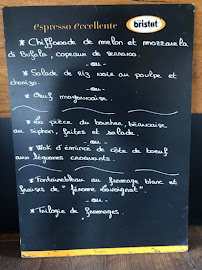 espresso eccellente bristot
* Chiffonade de melon et mozzarella
di Bufala, copeaux de serrano.
- ou -
* Salade de riz noir au poulpe et
chorizo.
- ou -
* Œuf mayonnaise.
* La pièce du boucher, béarnaise
au siphon, frites et salade.
- ou -
* Wok d'émincé de côte de boeuf
aux légumes croquants.
* Fontainebleau au fromage blanc et
fraises de "Jérome
- ou -
* Trilogie de fromages.